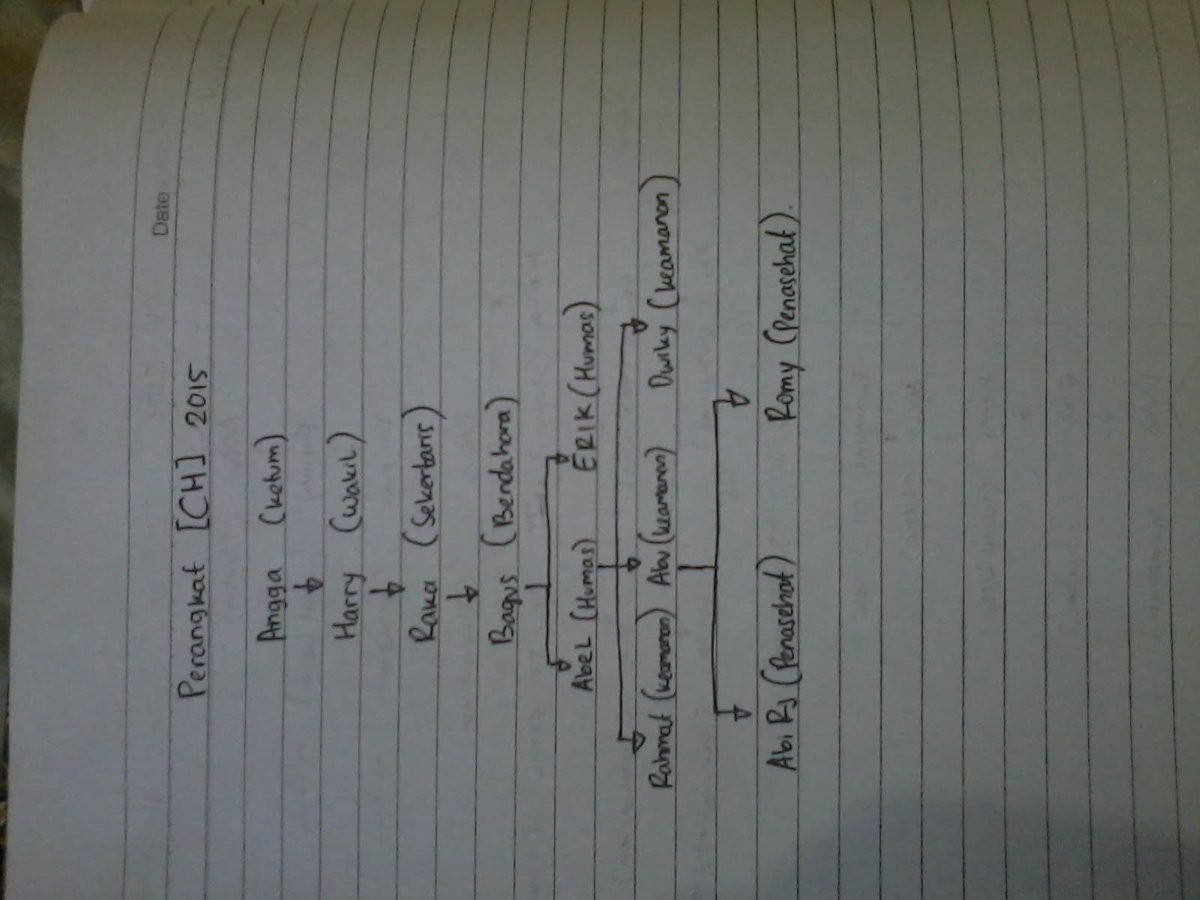 Date
Perangkat [CH] 2015
Angga (Ketum)
Harry (Wakil)
Raka (Sekertaris)
Bagus (Bendahara)
Abel (Humas) ERIK (Humas)
Rahmat (keamanan) Abu (keamanan) Dwiky (keamanan)
Abi Rj (Penasehat) Romy (Penasehat).